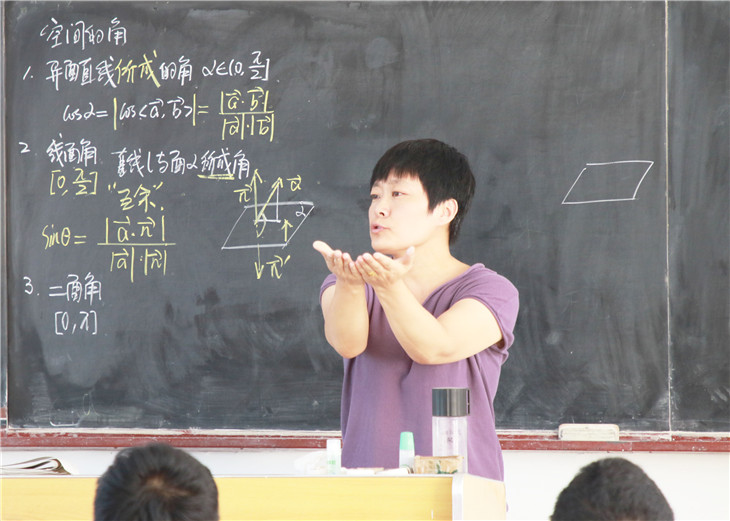 空间的角
1. 异面直线所成的角 α∈(0, π/2]
cosα = |cos<a⃗, b⃗>| = |a⃗·b⃗| / |a⃗|·|b⃗|
2. 线面角 直线l与面α所成角
[0, π/2] "互余"
sinθ = |a⃗·n⃗| / |a⃗|·|n⃗|
n⃗ a⃗
α
n⃗′
3. 二面角
[0, π]